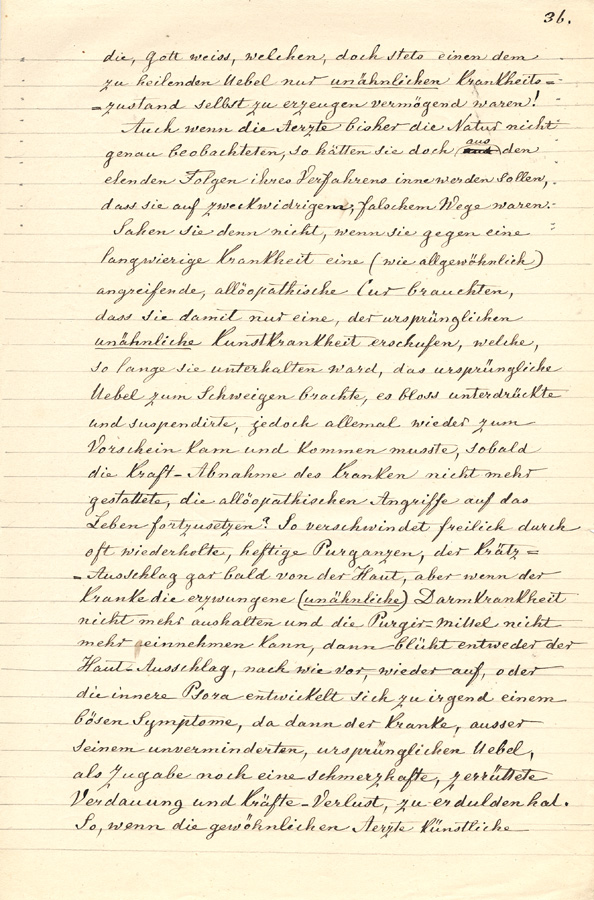 36.
die, Gott weiss, welchen, doch stets einen dem
zu heilenden Uebel nur unähnlichen Krankheits=
=zustand selbst zu erzeugen vermögend waren!
Auch wenn die Aerzte bisher die Natur nicht
genau beobachteten, so hätten sie doch aus den
elenden Folgen ihres Verfahrens inne werden sollen,
dass sie auf zweckwidrigem, falschem Wege waren.
Sahen sie denn nicht, wenn sie gegen eine
langwierige Krankheit eine (wie allgewöhnlich)
angreifende, allöopathische Cur brauchten,
dass sie damit nur eine, der ursprünglichen
unähnliche Kunstkrankheit erschufen, welche,
so lange sie unterhalten ward, das ursprüngliche
Uebel zum Schweigen brachte, es bloss unterdrückte
und suspendirte, jedoch allemal wieder zum
Vorschein kam und kommen musste, sobald
die Kraft-Abnahme des Kranken nicht mehr
gestattete, die allöopathischen Angriffe auf das
Leben fortzusetzen? So verschwindet freilich durch
oft wiederholte, heftige Purganzen, der Krätz=
=Ausschlag gar bald von der Haut, aber wenn der
Kranke die erzwungene (unähnliche) Darmkrankheit
nicht mehr aushalten und die Purgir-mittel nicht
mehr einnehmen kann, dann blüht entweder der
Haut-Ausschlag, nach wie vor, wieder auf, oder
die innere Psora entwickelt sich zu irgend einem
bösen Symptome, da dann der Kranke, ausser
seinem unverminderten, ursprünglichen Uebel,
als Zugabe noch eine schmerzhafte, zerrüttete
Verdauung und Kräfte-Verlust, zu erdulden hat.
So, wenn die gewöhnlichen Aerzte künstliche